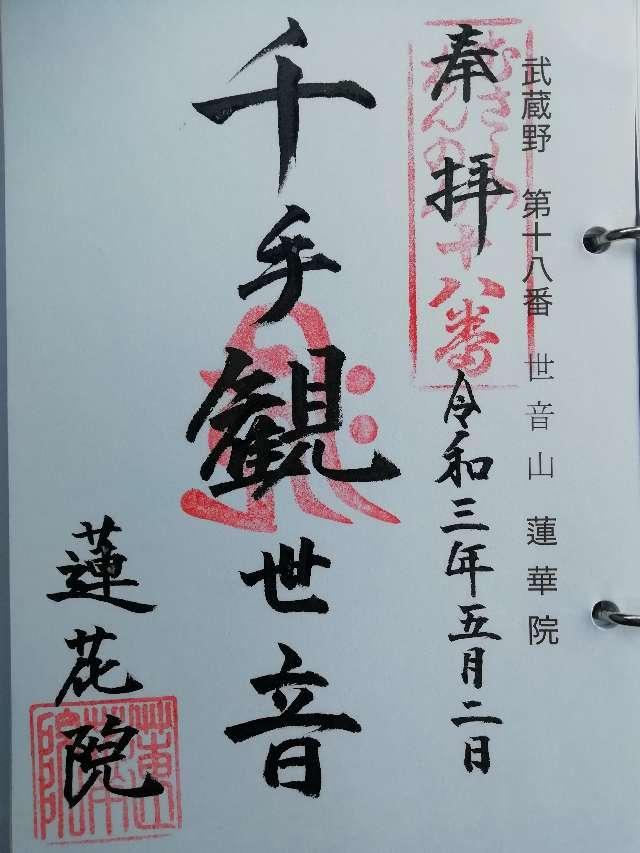 武蔵野 第十八番 世音山 蓮華院
奉拝
むさしの
かんのん
十八番
令和三年五月二日
千手観世音
蓮花院